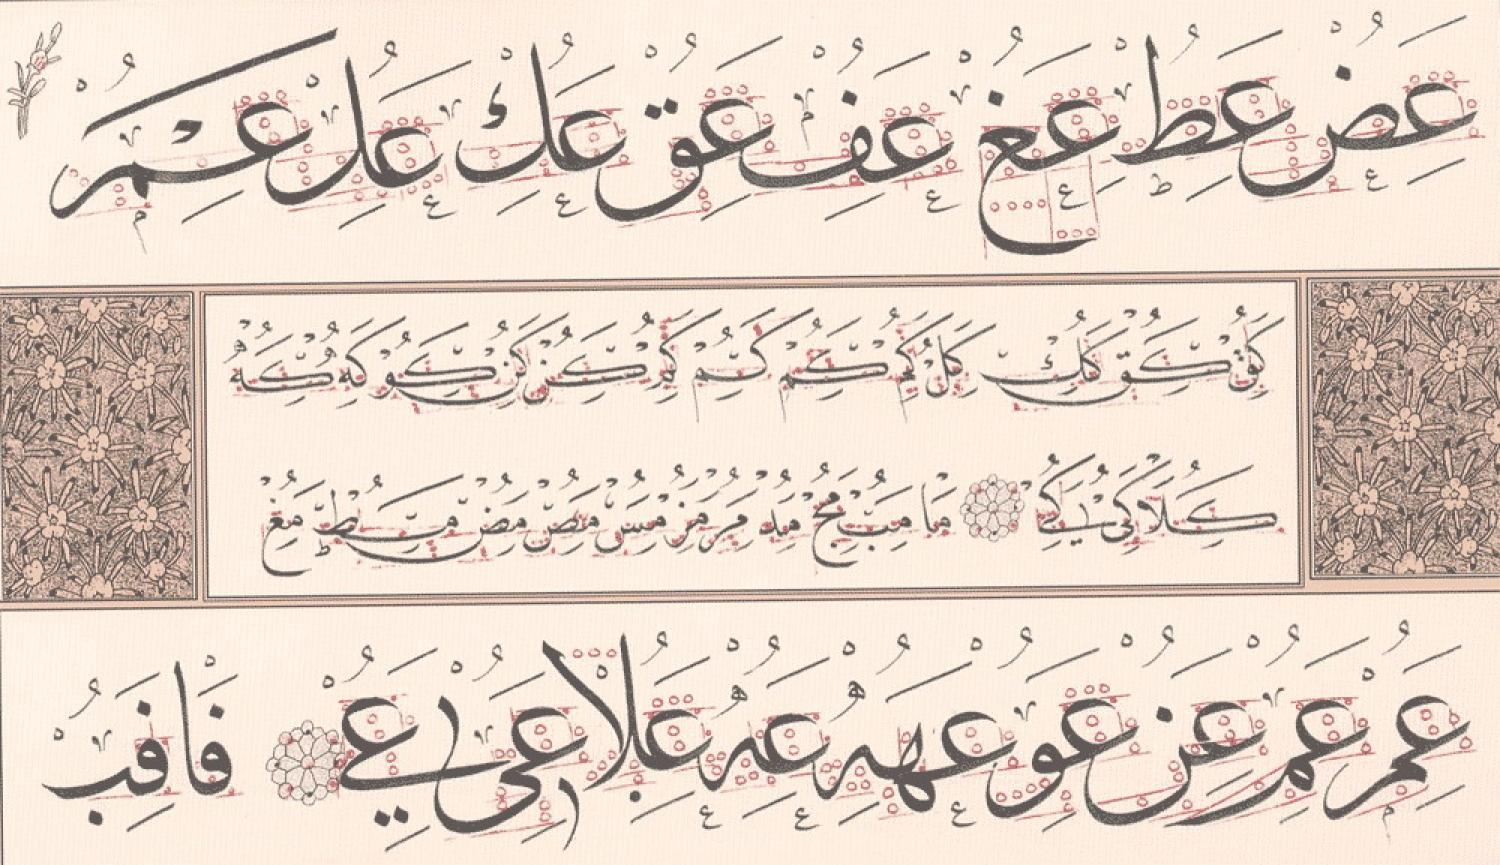 عض عط عغ عف عق عك عل عم
كق كق كك كل كم كم كم كم كن كن كو كه كه
كلا كي كي ما مب مج مد مر مز مس مص مض مب مط مغ
عم عم عن عو عهه عه علا عى عے فا فب